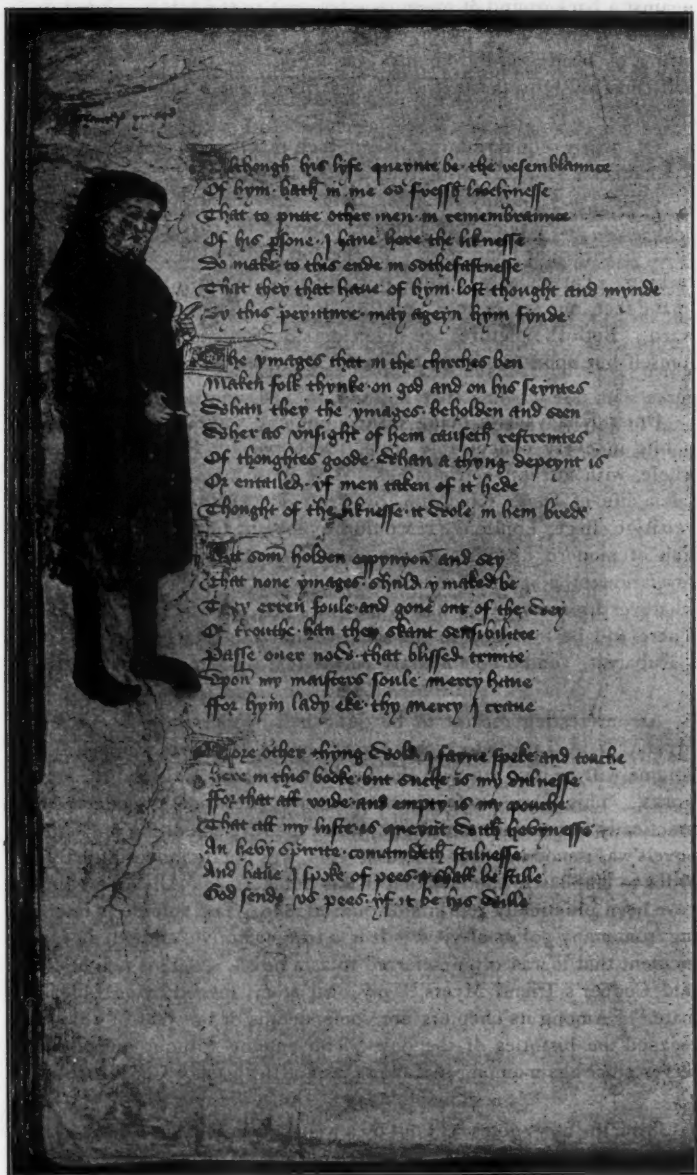 Chaucers ymage
Although his lyfe queynte be the resemblaunce
Of hym hath in me so fressh livelynesse
That to putte other men in remembraunce
Of his psone I have here the liknesse
Do make to this ende in sothefastnesse
That they that have of hym lost thought and mynde
By this peynture may ageyn hym fynde
The ymages that in the chirches ben
Maken folk thynke on god and on his seyntes
Whan they the ymages beholden and seen
Wher as unsight of hem causeth restreintes
Of thoughtes goode Whan a thyng depeynt is
Or entailed if men taken of it hede
Thought of the liknesse it wole in hem brede
But som holden oppynyon and sey
That none ymages shuld y maked be
They erren foule and gone out of the wey
Of trouthe han they skant sensibilitee
Passe over now that blissed trinite
Upon my maisters soule mercy have
ffor hym lady eke thy mercy I crave
More other thyng wold I fayne speke and touche
here in this booke but suche is my dulnesse
ffor that all voide and empty is my pouche
That all my luste is queynt with hevynesse
An hevy spirite comaundeth stilnesse
And have I spoke of pees I shall be stille
God sende us pees if it be his wille